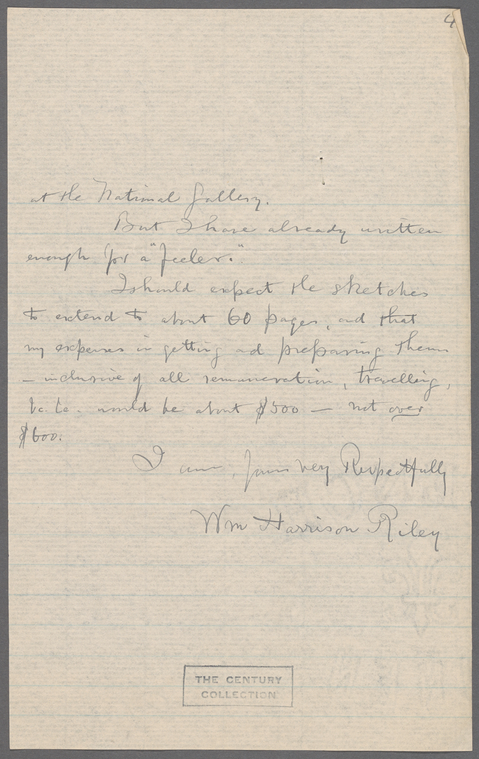 4
at the National Gallery.
But I have already written
enough for a "feeler."
I should expect the sketches
to extend to about 60 pages, and that
my expenses in getting and preparing them
— inclusive of all remuneration, travelling,
&c. &c. would be about $500 — not over
$600.
I am, Yours very Respectfully
Wm Harrison Riley
THE CENTURY
COLLECTION